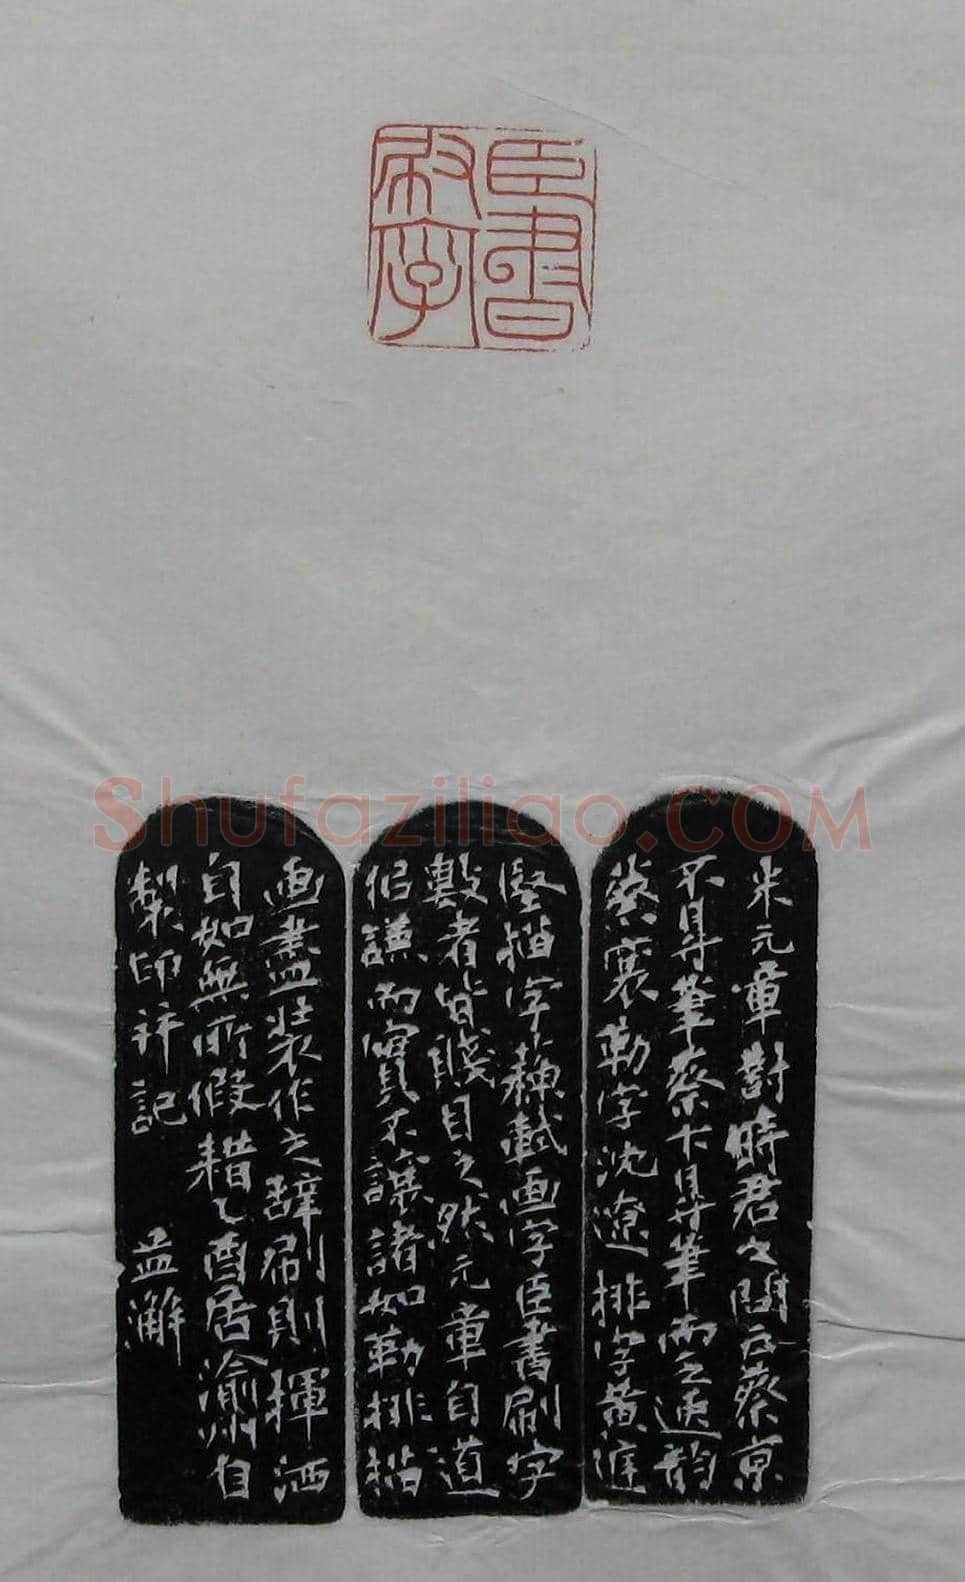 臣書
刷字
Shufaziliao.COM
米元章對時君之問云蔡京
不得筆蔡卞得筆而乏逸韵
蔡襄勒字沈遼排字黄庭
堅描字蘇軾画字臣書刷字
數者皆賤目之然元章自道
似謙而實不謙諸如勒排描
画盡裝作之辞刷則揮洒
自如無所假耤乙酉居渝州自
製印并記 益灕